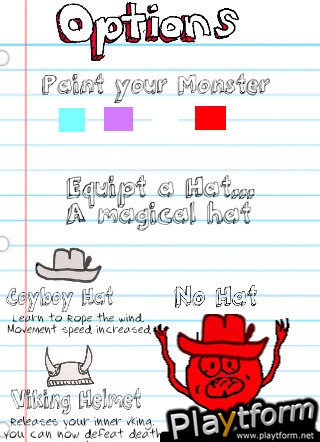 Options
Paint your Monster
Equipt a Hat,,,
A magical hat
Coyboy Hat
Learn to Rope the wind.
Movement speed increased
No Hat
Viking Helmet
Releases your inner vking,
you can now defeat death
Playtform
www.playtform.net